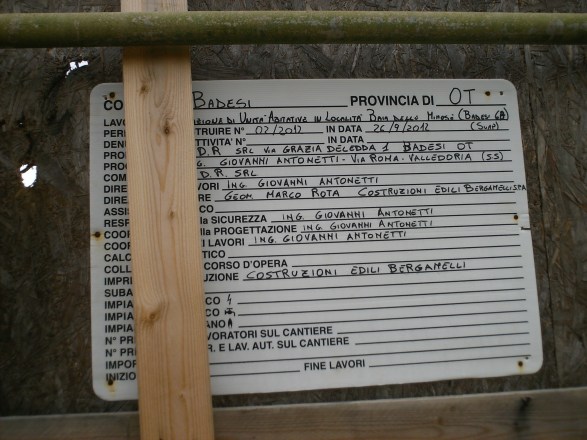 CO BADESI PROVINCIA DI OT
LAVO ZIONE DI UNITÀ ABITATIVE IN LOCALITÀ BAIA DELLE MIMOSE (BADESI 6B)
PERM TRUIRE N° 02/2012 IN DATA 26/9/2012 (SUAP)
DENU TTIVITÀ N° IN DATA
PROP D.R. SRL VIA GRAZIA DELEDDA 1 BADESI OT
PROG G. GIOVANNI ANTONETTI - VIA ROMA - VALLEDORIA (SS)
COM D.R. SRL
DIRE VORI ING. GIOVANNI ANTONETTI
DIRE RE GEOM. MARCO ROTA COSTRUZIONI EDILI BERGAMELLI SPA
ASSI CO
RESP la SICUREZZA ING. GIOVANNI ANTONETTI
COOR lla PROGETTAZIONE ING. GIOVANNI ANTONETTI
COOR I LAVORI ING. GIOVANNI ANTONETTI
CALC TICO
COLL CORSO D'OPERA
IMPR UZIONE COSTRUZIONI EDILI BERGAMELLI
SUBA
IMPIA CO
IMPIA CO
IMPIA ANO
N° PR VORATORI SUL CANTIERE
N° PR R. E LAV. AUT. SUL CANTIERE
IMPOR
INIZIO FINE LAVORI